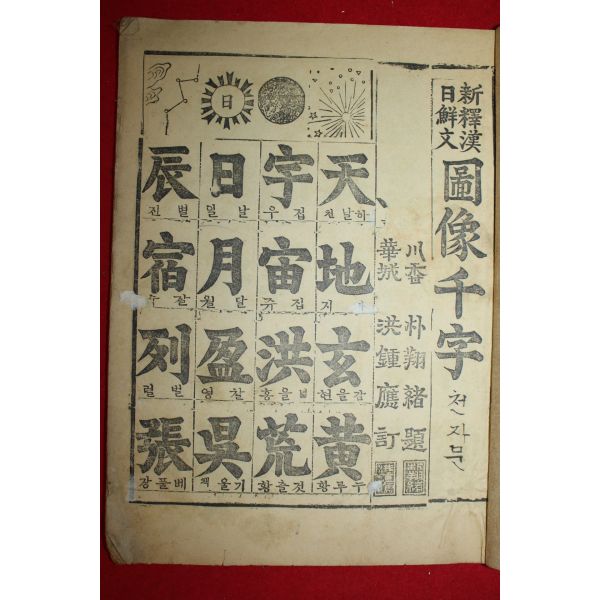 新釋漢
日鮮文
圖像千字
천자문
川香 朴翔緖 題
華城 洪鍾應 訂
天地玄黃
하날천
지
감을현
누루황
宇宙洪荒
집우
집쥬
넓을홍
것츨황
日月盈昃
날일
달월
찰영
기울책
辰宿列張
별진
잘수
벌렬
베풀장
日